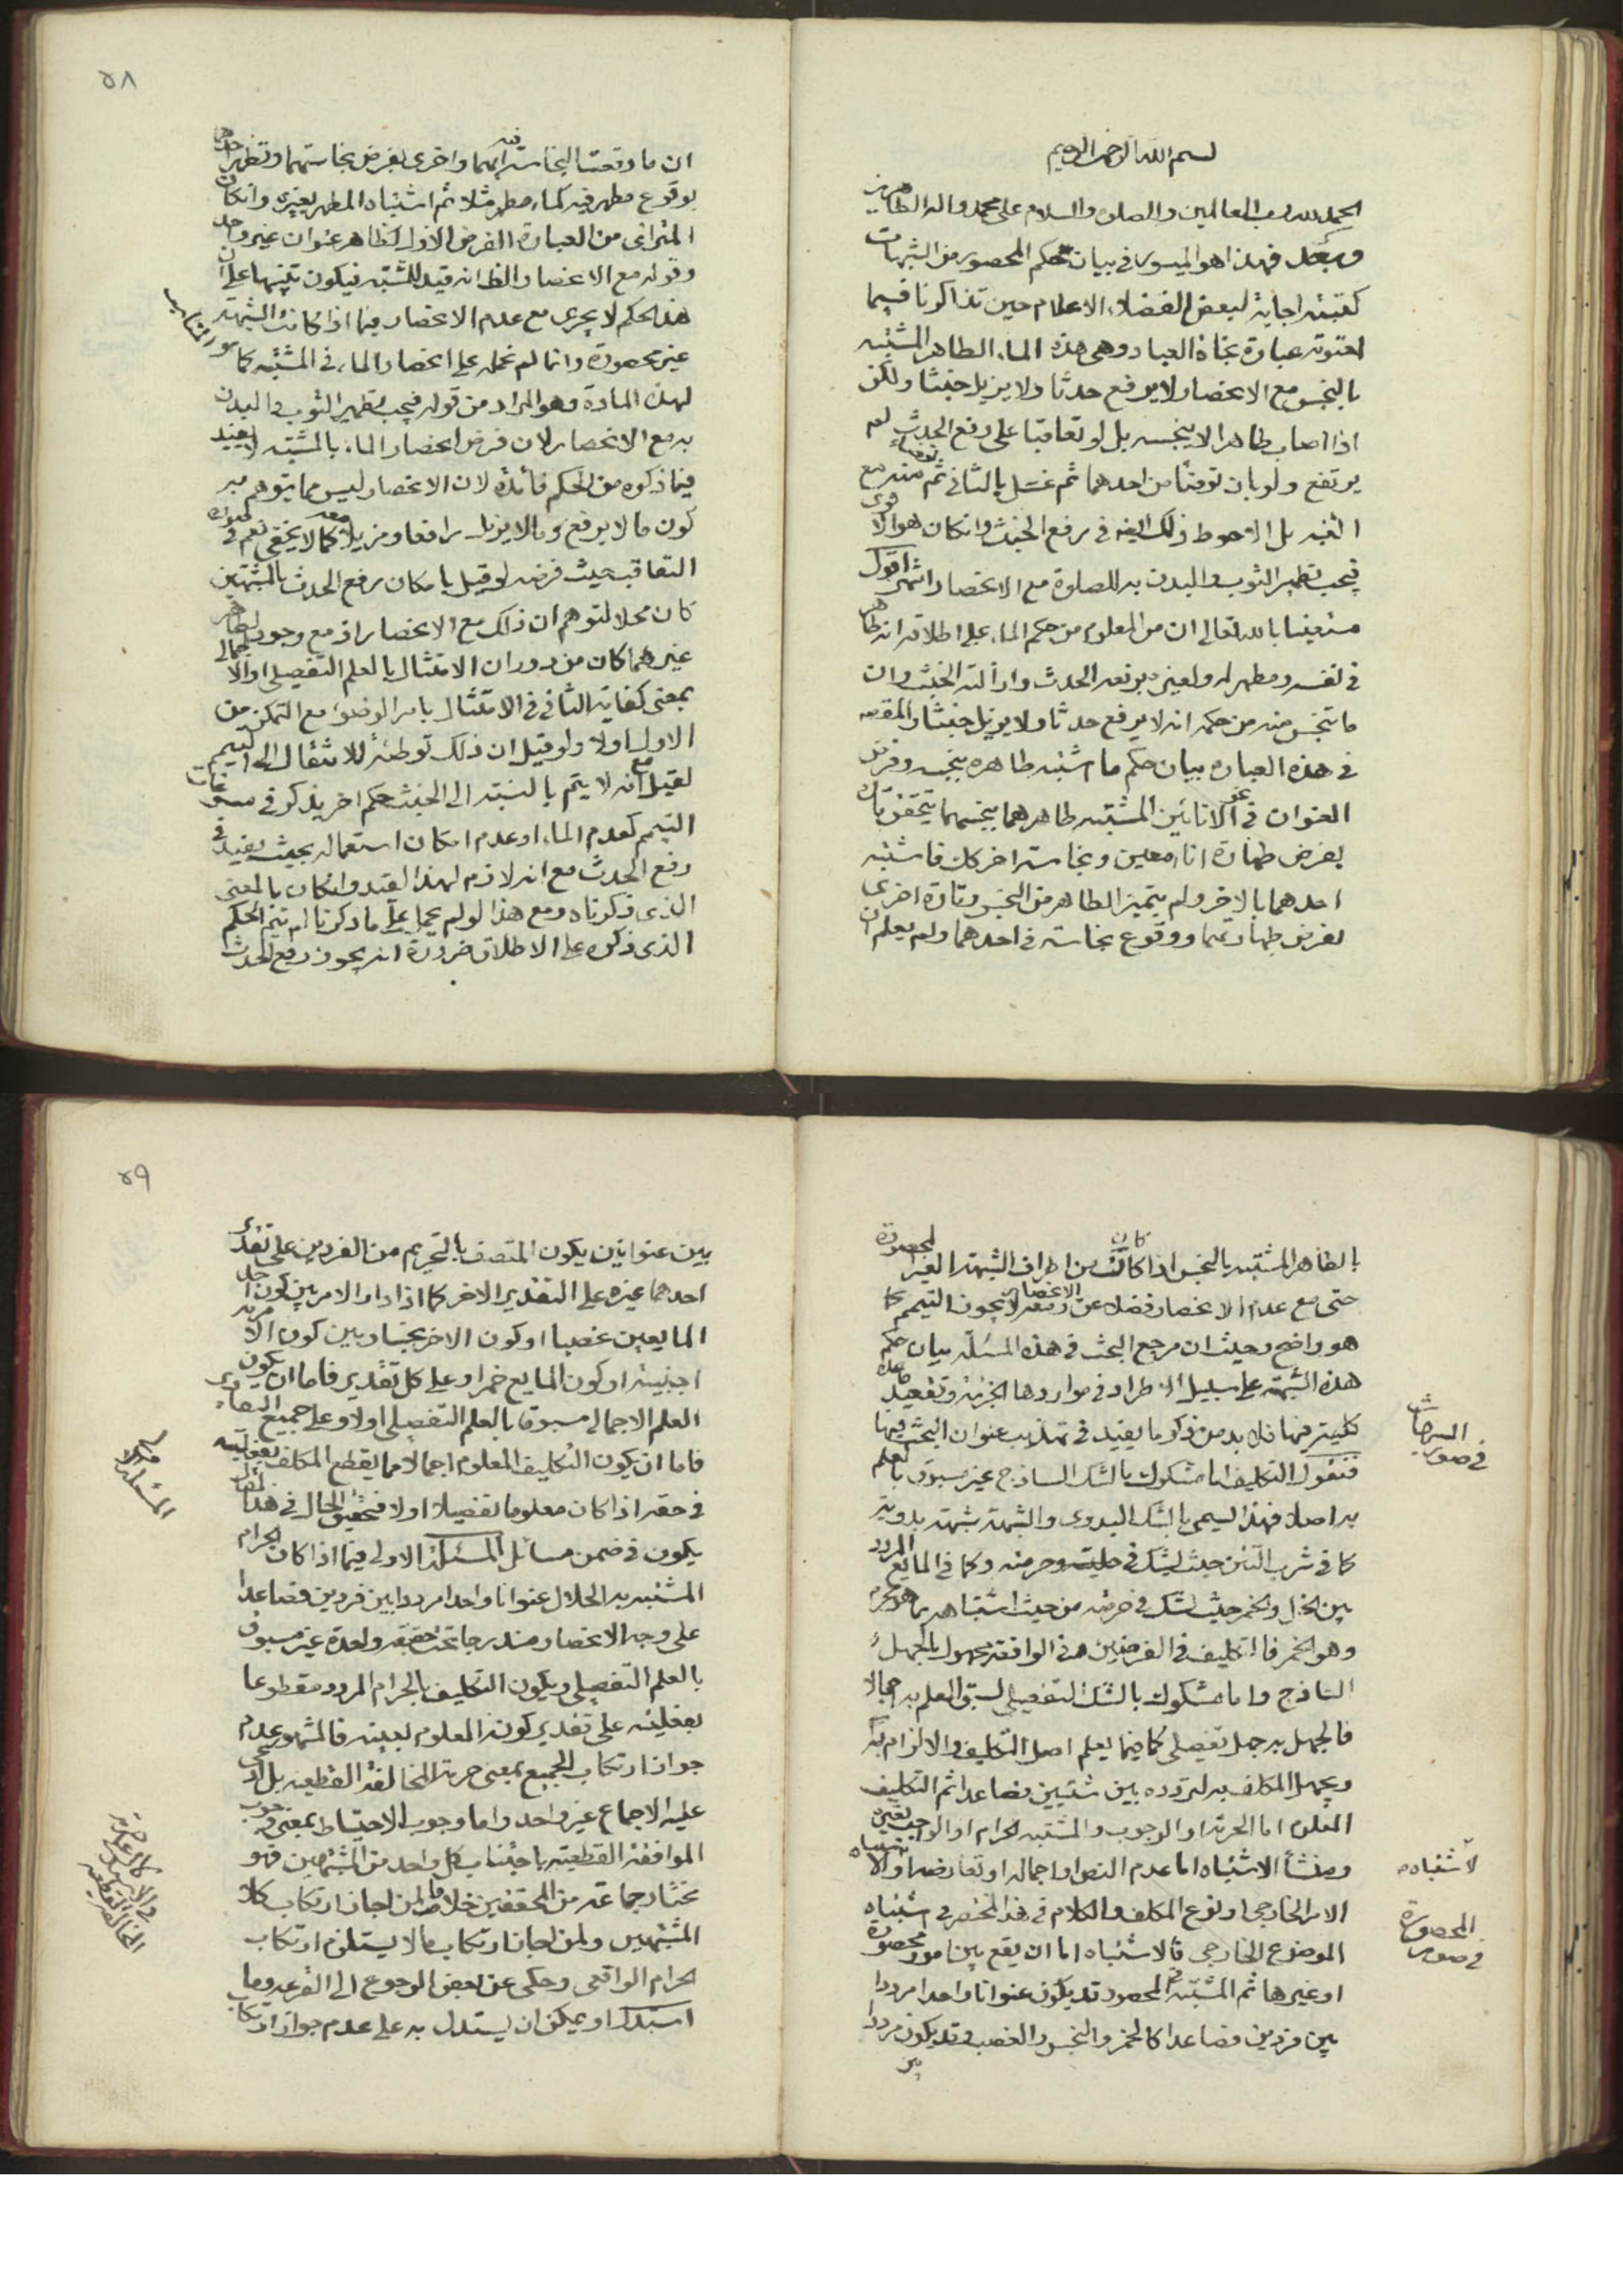 بسم الله الرحمن الرحيم
الحمد لله رب العالمين والصلوة والسلام على محمد واله الطاهرين
وبعد فهذا هو الميسور في بيان حكم المحصور من الشبهات
كتبته اجابة لبعض الفضلاء الاعلام حين تذاكرنا فيما
احتوته عبارة نجاة العباد وهى هذه الماء الطاهر المشتبه
بالنجس مع الانحصار لا يرفع حدثا ولا يزيل خبثا ولكن
اذا اصاب طاهرا لا ينجسه بل لو تعاقبا على رفع الحدث لم
يرتفع ولو بان توضئا من احدهما ثم غسل بالثانى ثم توضاء منه مع
بل الاحوط ذلك ايضا في رفع الخبث وانكان هو الاقوى
فيجب تطهير الثوب والبدن به للصلوة مع الانحصار انتهى اقول
مستعينا بالله تعالى ان من المعلوم من حكم الماء على اطلاقه انه طاهر
في نفسه ومطهر له ولغيره برفعه الحدث وازالته الخبث وان
ما تنجس منه من حكمه انه لا يرفع حدثا ولا يزيل خبثا والمقصد
في هذه العبارة بيان حكم ما اشتبه طاهره بنجسه وفرض
العنوان في نحو الانائين المشتبه طاهرهما بنجسهما يتحقق تارة
بفرض طهارة اناء معين ونجاسة اخر كك فاشتبه
احدهما بالاخر ولم يتميز الطاهر من النجس وتارة اخرى
بفرض طهارتهما ووقوع نجاسة في احدهما ولم يعلم ان
٥٨
ان ما وقعت النجاسة فيه ايهما واخرى بفرض نجاستهما وتطهير احدهما
بوقوع مطهر فيه كماء مطهر مثلا ثم اشتباه المطهر بغيره وانكان
المترائى من العبارة الفرض الاول لظاهر عنوان غير واحد
وقوله مع الانحصار الظ انه قيد للمشتبه فيكون تنبيها على ان
هذا الحكم لا يجرى مع عدم الانحصار فيما اذا كانت الشبهة
غير محصورة وانما لم نحمله على انحصار الماء في المشتبه كما هو المناسب
لهذه المادة وهو المراد من قوله فيجب تطهير الثوب والبدن
به مع الانحصار لان فرض انحصار الماء بالمشتبه لا يفيد
فيما ذكره من الحكم فائدة لان الانحصار ليس مما يتوهم به
كون ما لا يرفع وما لا يزيل رافعا ومزيلا معه كما لا يخفى نعم في
التعاقب حيث فرضه لو قيل بامكان رفع الحدث بالمشتبهين
كان محلا لتوهم ان ذلك مع الانحصار اذ مع وجود طاهر
غيرهما كان من دوران الامتثال بالعلم التفصيلى او الاجمالى
بمعنى كفاية الثانى في الامتثال بامر الوضوء مع التمكن من
الاول اولا ولو قيل ان ذلك توطئة للانتقال الى التيمم
لقيل مع انه لا يتم بالنسبة الى الخبث حكم اخر يذكر في مسوغات
التيمم كعدم الماء او عدم امكان استعماله بحيث يفيد في
رفع الحدث مع انه لازم لهذا القيد وانكان بالمعنى
الذى ذكرناه ومع هذا لو لم يحمل على ما ذكرنا لم يتم الحكم
الذى ذكره على الاطلاق ضرورة انه يجوز رفع الحدث
بالطاهر المشتبه بالنجس اذا كان من اطراف الشبهة الغير المحصورة
حتى مع عدم الانحصار فضلا عن الانحصار لا يجوز التيمم كما
هو واضح وحيث ان مرجع البحث في هذه المسئلة بيان حكم
هذه الشبهة على سبيل الاطراد في مواردها الجزئية وتقعيد قاعدة
كلية فيها فلا بد من ذكر ما يفيد في تهذيب عنوان البحث فيها
فنقول التكليف اما مشكوك بالشك الساذج غير مسبوق بالعلم
به اصلا فهذا يسمى بالشك البدوى والشبهة شبهة بدوية
كما في شرب التتن حيث يشك في حليته وحرمته وكما في المايع المردد
بين الخل والخمر حيث يشك في حرمته من حيث اشتباهه بما هو محرم
وهو الخمر فالتكليف في الفرضين في الواقعة مجهول بالجهل
الساذج واما مشكوك بالشك التفصيلى لسبق العلم به اجمالا
فالجهل به جهل تفصيلى كما فيما يعلم اصل التكليف والالزام به
ويجهل المكلف به لتردده بين شيئين فصاعدا ثم التكليف
المعلوم اما الحرمة او الوجوب والمشتبه الحرام او الواجب بغيره
ومنشأ الاشتباه اما عدم النص او اجماله او تعارضه او الاشتباه
الامر الخارجى او نوع المكلف والكلام في هذا المختصر في اشتباه
الموضوع الخارجى فالاشتباه اما ان يقع بين امور محصورة
او غيرها ثم المشتبه في المحصور قد يكون عنوانا واحدا مرددا
بين فردين فصاعدا كالخمر والنجس والغصب وقد يكون مرددا
بين
لاشتباه
المحصورة
في صور
٥٩
بين عنوانين يكون المتصف بالتحريم من الفردين على تقدير
احدهما غيره على التقدير الاخر كما اذا دار الامر بين كون احد
المايعين غصبا او كون الاخر نجسا وبين كون الامرئة
اجنبية او كون المايع خمرا وعلى كل تقدير فاما ان يكون
العلم الاجمالى مسبوقا بالعلم التفصيلى اولا وعلى جميع التقادير
فاما ان يكون التكليف المعلوم اجمالا مما يقطع المكلف بفعليته
في حقه اذا كان معلوما تفصيلا اولا فتحقيق الحال في هذا المقال
يكون في ضمن مسائل المسئلة الاولى فيما اذا كان الحرام
المشتبه به الحلال عنوانا واحدا مرددا بين فردين فصاعدا
على وجه الانحصار مندرجا تحت حقيقة واحدة غير مسبوق
بالعلم التفصيلى ويكون التكليف بالحرام المردد مقطوعا
بفعليته على تقدير كونه المعلوم بعينه فالمشهور عدم
جواز ارتكاب الجميع بمعنى حرمة المخالفة القطعية بل ادعى
عليه الاجماع غير واحد واما وجوب الاحتياط بمعنى وجوب
الموافقة القطعية باجتناب كل واحد من المشتبهين فهو
مختار جماعة من المحققين خلافا لمن اجاز ارتكاب كلا
المشتبهين ولمن اجاز ارتكاب ما لا يستلزم ارتكاب
الحرام الواقعى وحكى عن بعض الرجوع الى القرعة وما
استدل او يمكن ان يستدل به على عدم جواز ارتكاب
المسئلة الاولى